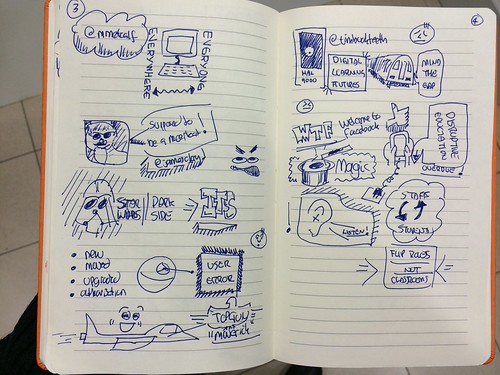 3
@mmetcalf
EVERYWHERE
EVERYONE
Suppose to
be a moustache!
STAR
WARS
DARK
SIDE
ITS
new
moved
upgrade
USER
ERROR
TOPGUN
"MAVERICK"
4
@timbuckteeth
HAL
9000
DIGITAL
LEARNING
FUTURES
MIND
THE
GAP
WTF
Welcome to
Facebook
DISRUPTIVE
EDUCATION
OVERDUE!
Magic
LISTEN!
STAFF
STUDENT
FLIP ROLES
NOT
CLASSROOM